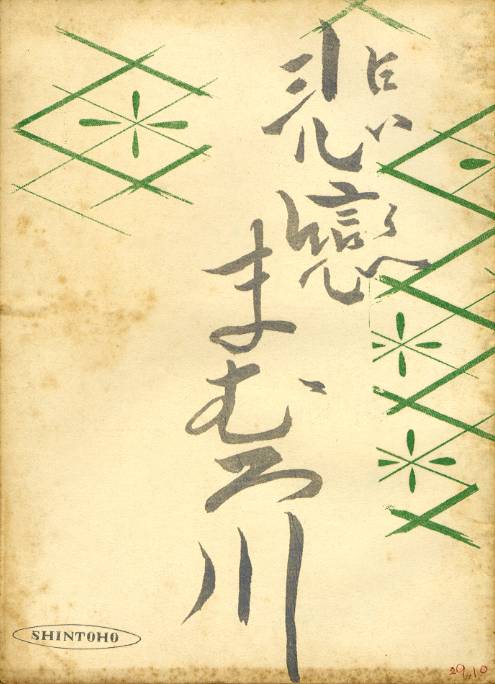 悲戀まむろ川
SHINTOHO
29.10